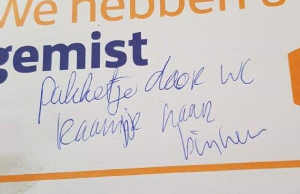 We hebben
gemist
pakketje door wc
raampje naar
binnen